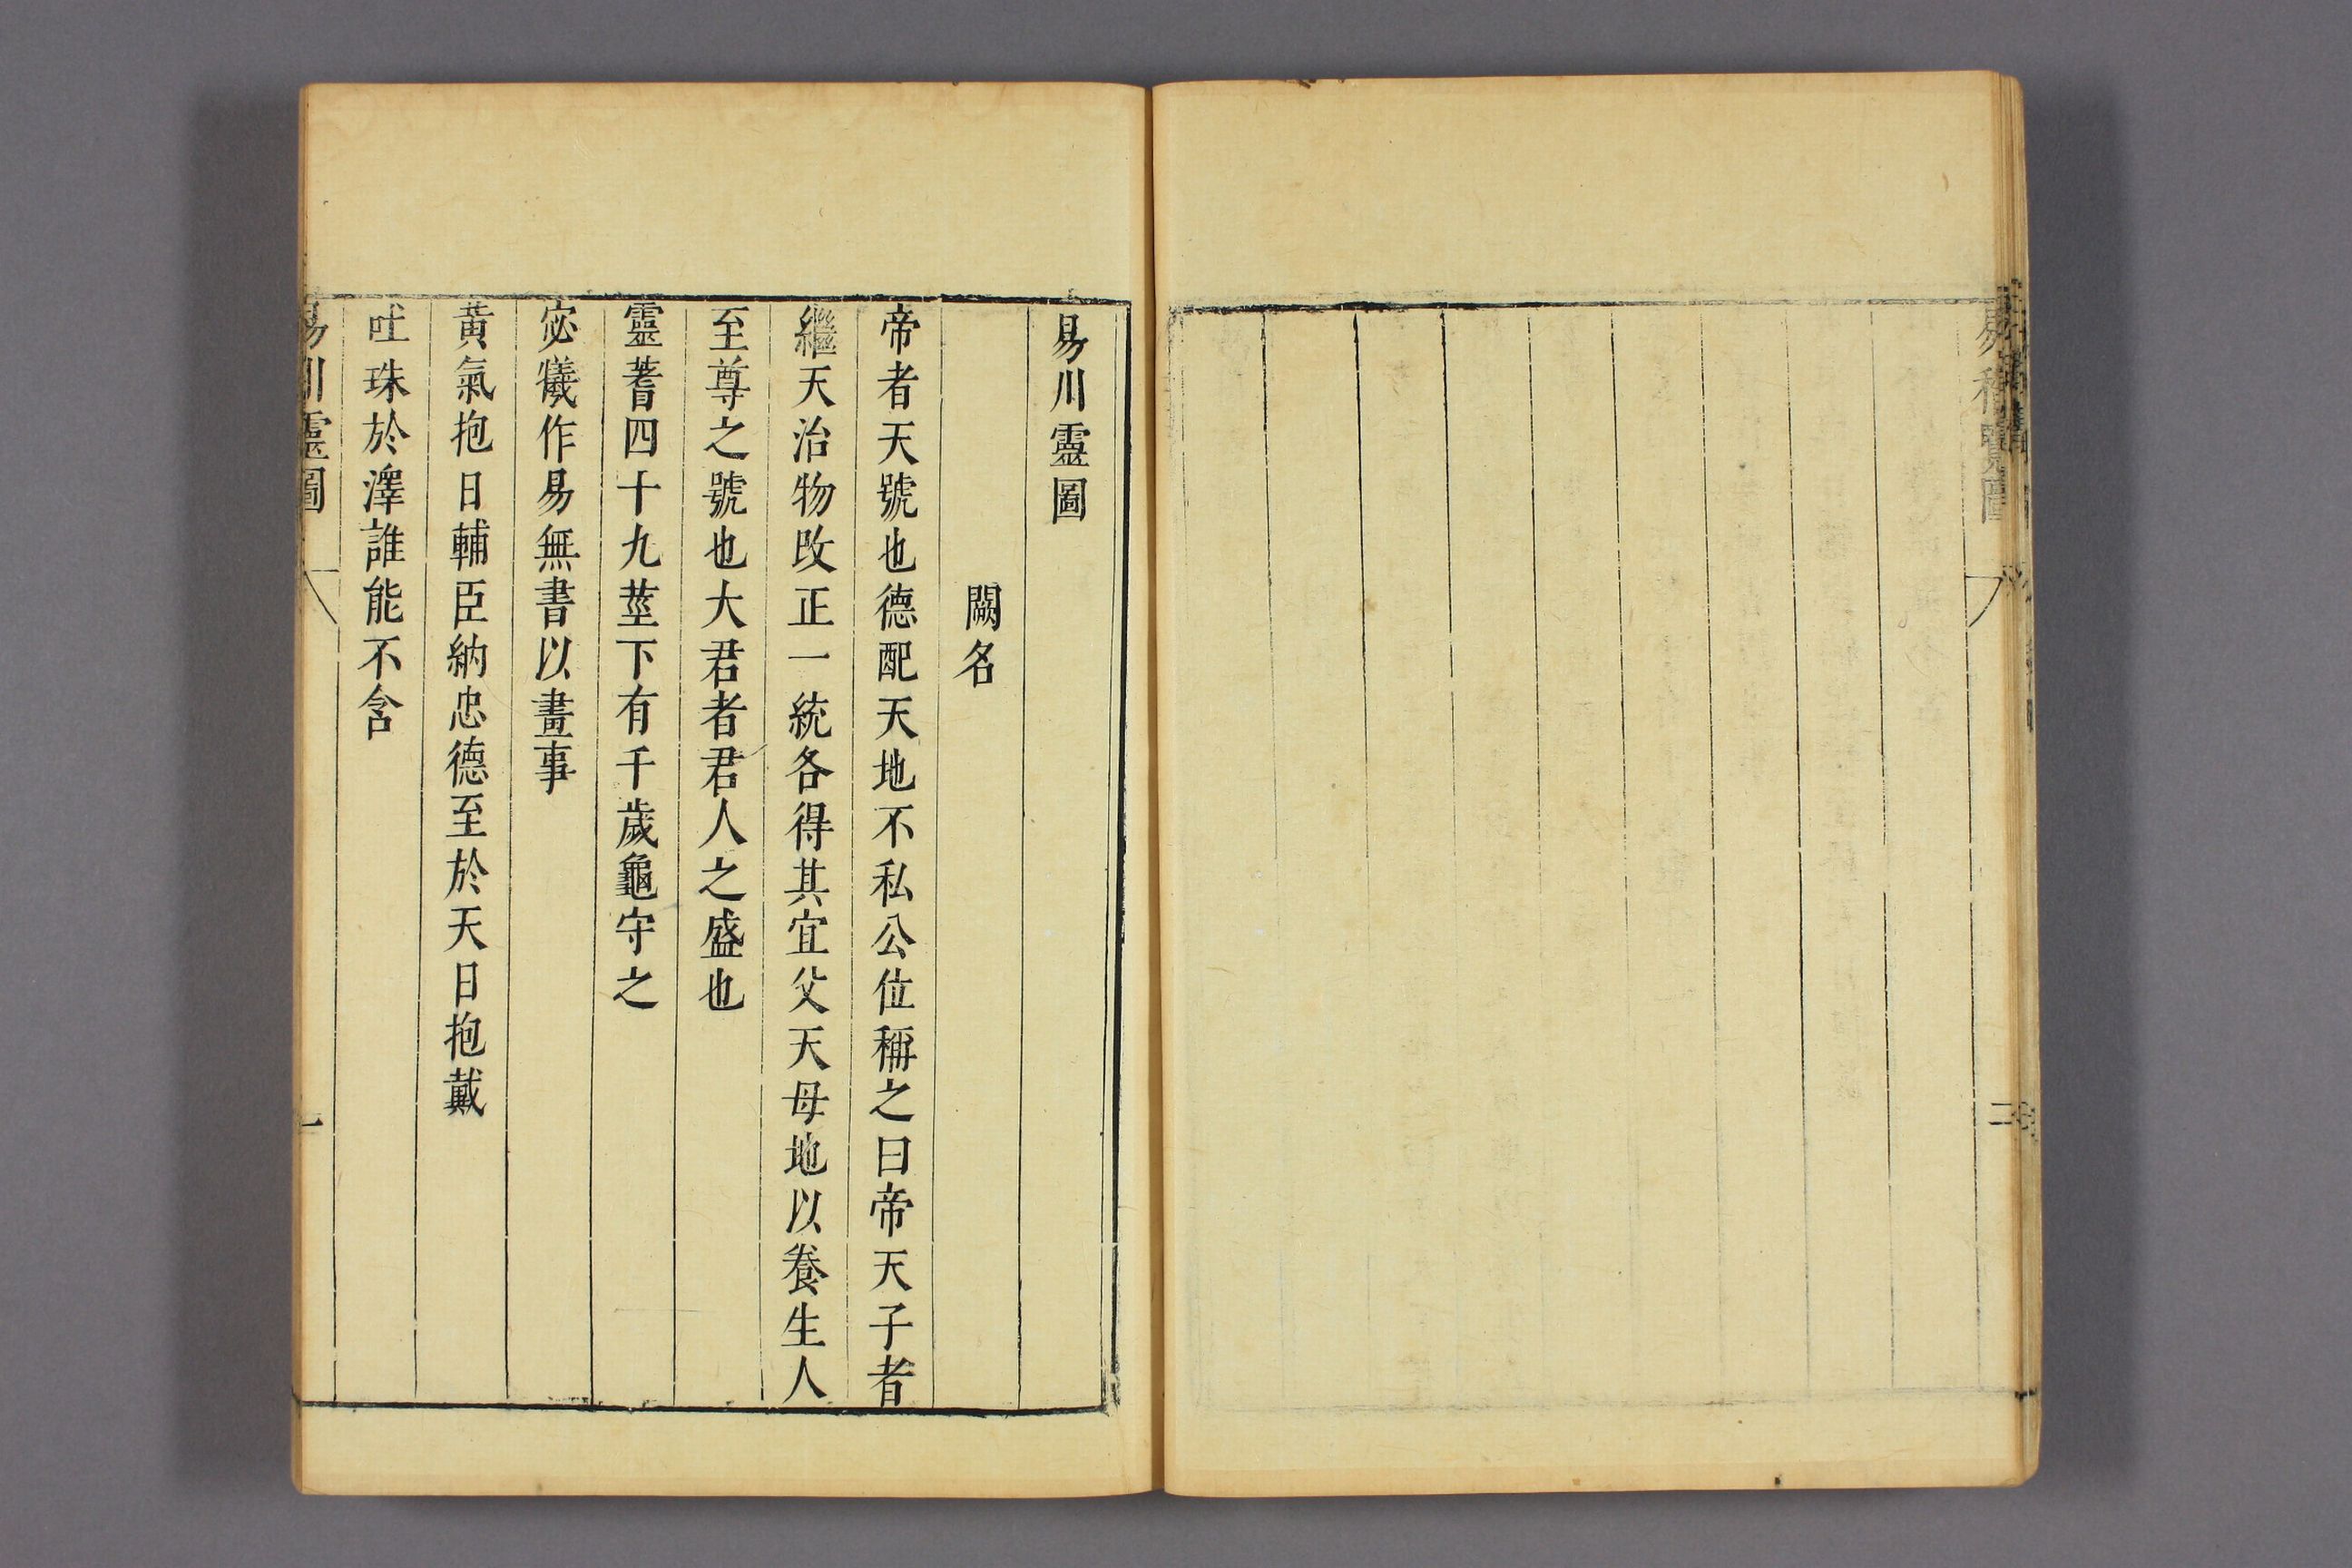 易稽覽圖
二
易川靈圖
闕名
帝者天號也德配天地不私公位稱之曰帝天子者
繼天治物改正一統各得其宜父天母地以養生人
至尊之號也大君者君人之盛也
靈蓍四十九莖下有千歲龜守之
宓犧作易無書以畫事
黃氣抱日輔臣納忠德至於天日抱戴
吐珠於澤誰能不含
易川靈圖
一